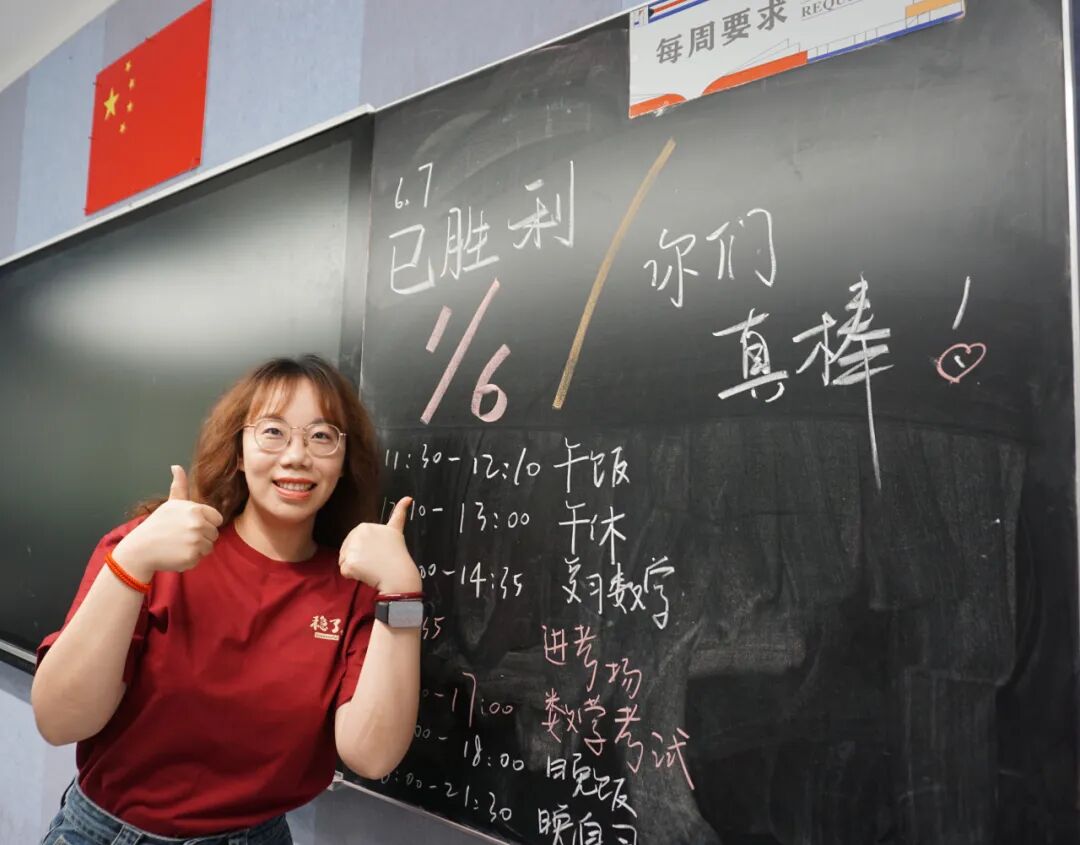 每周要求
6.7
已胜利
1/6
你们
真棒！
11:30-12:10 午饭
10-13:00 午休
00-14:35 复习数学
35 进考场
-17:00 数学考试
00-18:00 晚饭
:00-21:30 晚自习
稳了